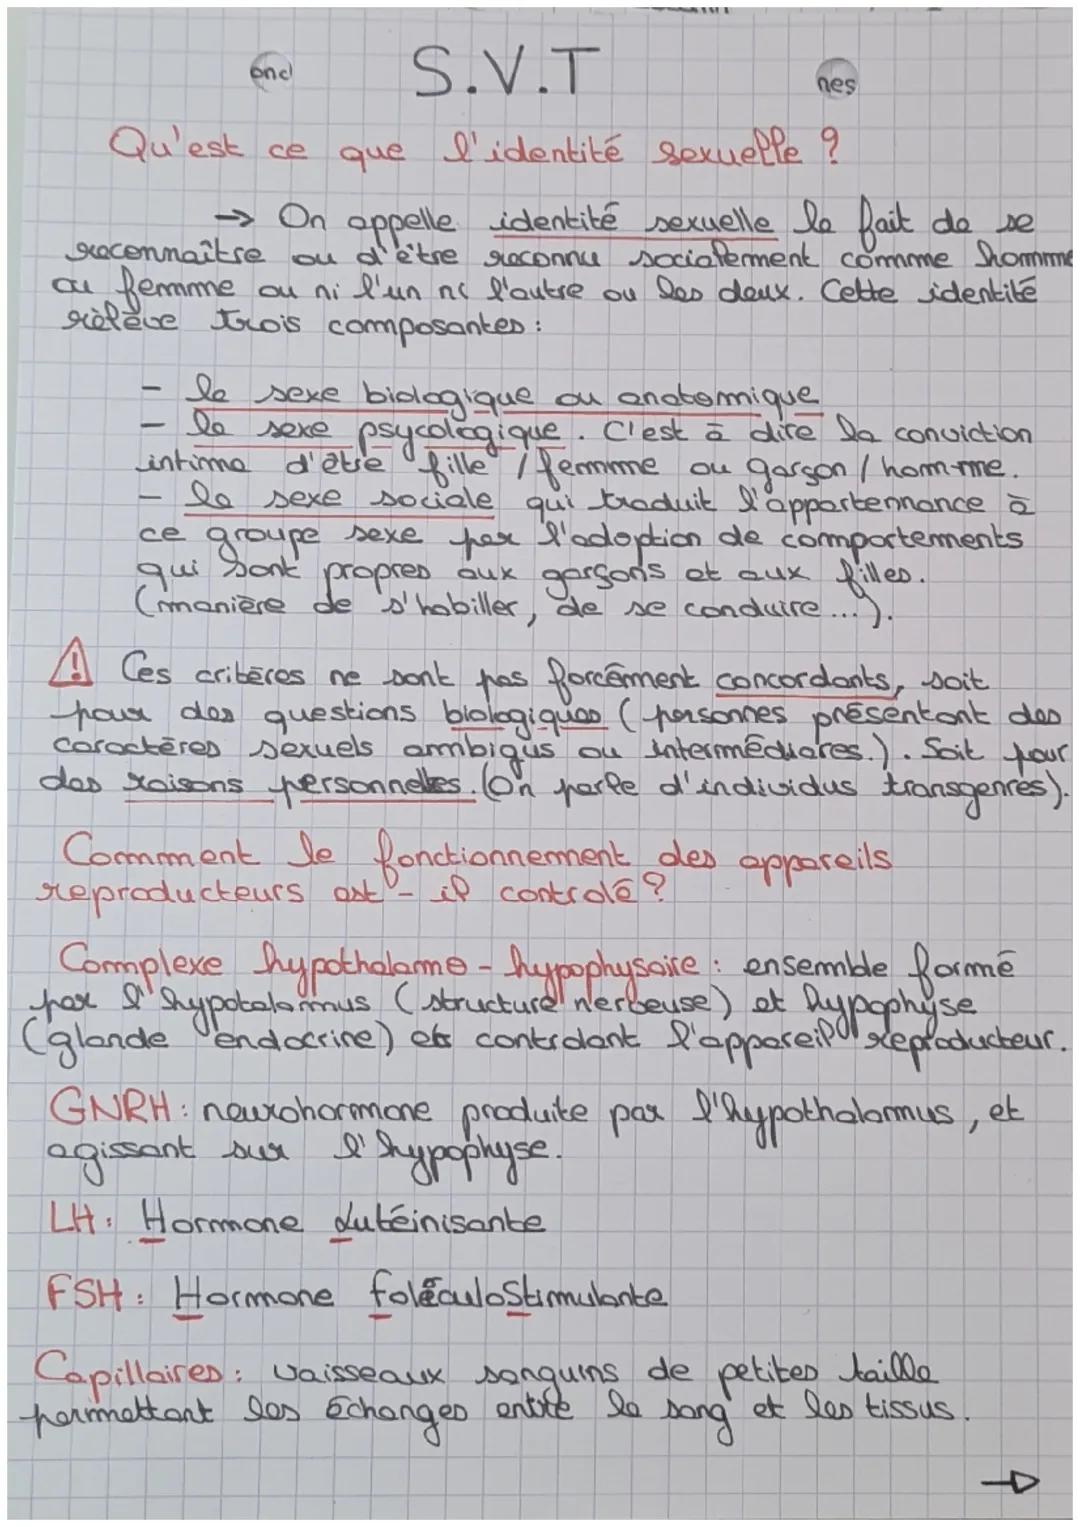 S.V.T
Qu'est ce que l'identité sexuelle ?
→ On appelle identité sexuelle le fait de se
reconnaître ou d'être reconnu socialement comme homme
ou femme ou ni l'un ni l'autre ou les deux. Cette identité
rélève trois composantes :
- le sexe biologique ou anatomique
- le sexe psycologique. C'est à dire la conviction
intime d'être fille / femme ou garçon / homme.
- le sexe sociale qui traduit l'appartennance à
ce groupe sexe par l'adoption de comportements
qui sont propres aux garçons et aux filles.
(manière de s'habiller, de se conduire...).
⚠ Ces critères ne sont pas forcément concordants, soit
pour des questions biologiques (personnes présentant des
caractères sexuels ambigus ou intermédiares.). Soit pour
des raisons personnelles. (On parle d'individus transgenres).
Comment le fonctionnement des appareils
reproducteurs est-il controlé ?
Complexe hypothalamo-hypophysaire : ensemble formé
par l'hypotalamus (structure nerveuse) et hypophyse
(glande endocrine) et controlant l'appareil reproducteur.
GNRH : neurohormone produite par l'hypothalamus, et
agissant sur l'hypophyse.
LH : Hormone Lutéinisante
FSH : Hormone foléculoStimulante
Capillaires : vaisseaux sanguins de petites taille
permettant les échanges entre le sang et les tissus.
→